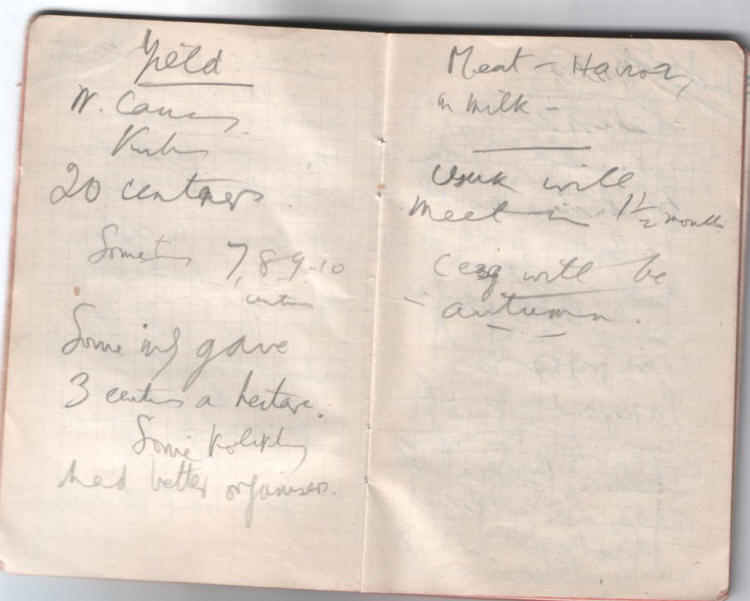 Yield
N. Caucasus
Kuban
20 centners.
Sometimes 7, 8 9-10
centners
Some only gave
3 centners a hectare.
Some Kolkhoz
had better organisers.
Meat -
in milk -
will
meet in 1 1/2 months
will be
- autumn.